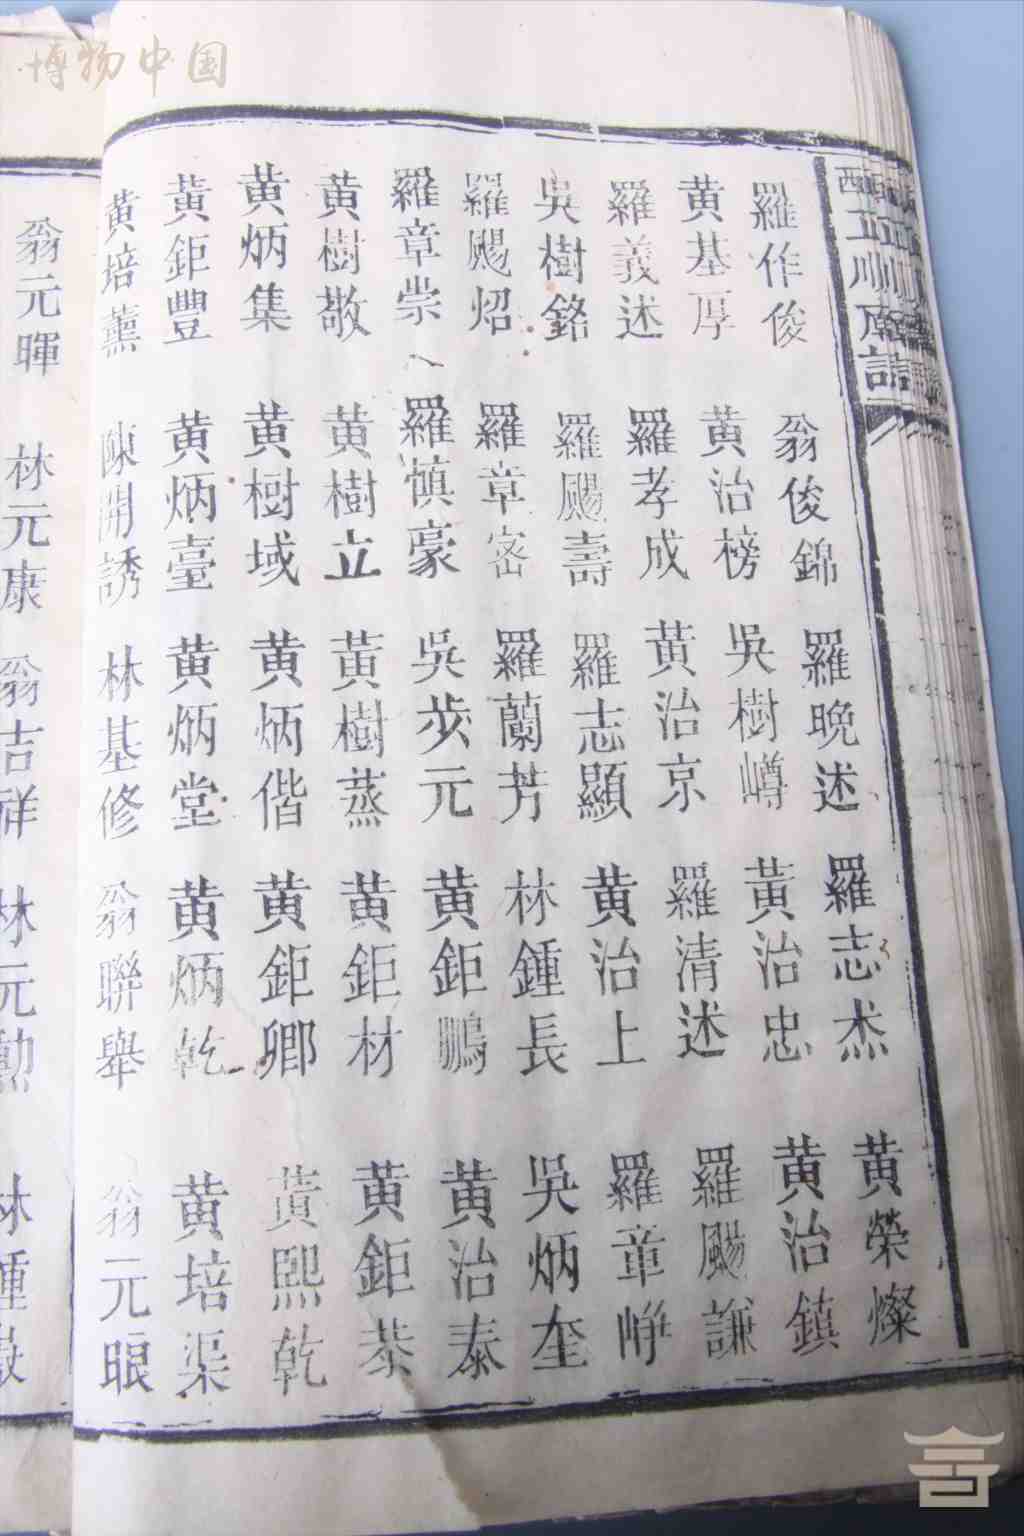 博物中国
羅作俊 翁俊錦 羅晚述 羅志杰 黄榮燦
黄基厚 黄治榜 吳樹嶟 黄治忠 黄治鎮
羅義述 羅孝成 黄治京 羅清述 羅颺謙
吳樹銘 羅颺壽 羅志顯 黄治上 羅章崢
羅颺炤 羅章密 羅蘭芳 林鍾長 吳炳奎
羅章崇 羅慎豪 吳步元 黄鉅鵬 黄治泰
黄樹敬 黄樹立 黄樹蒸 黄鉅材 黄鉅恭
黄炳集 黄樹域 黄炳偕 黄鉅卿 黄熙乾
黄鉅豐 黄炳臺 黄炳堂 黄炳乾 黄培渠
黄培薰 陳開誘 林基修 翁聯舉 翁元眼
翁元暉 林元康 翁吉祥 林元勳 林鍾